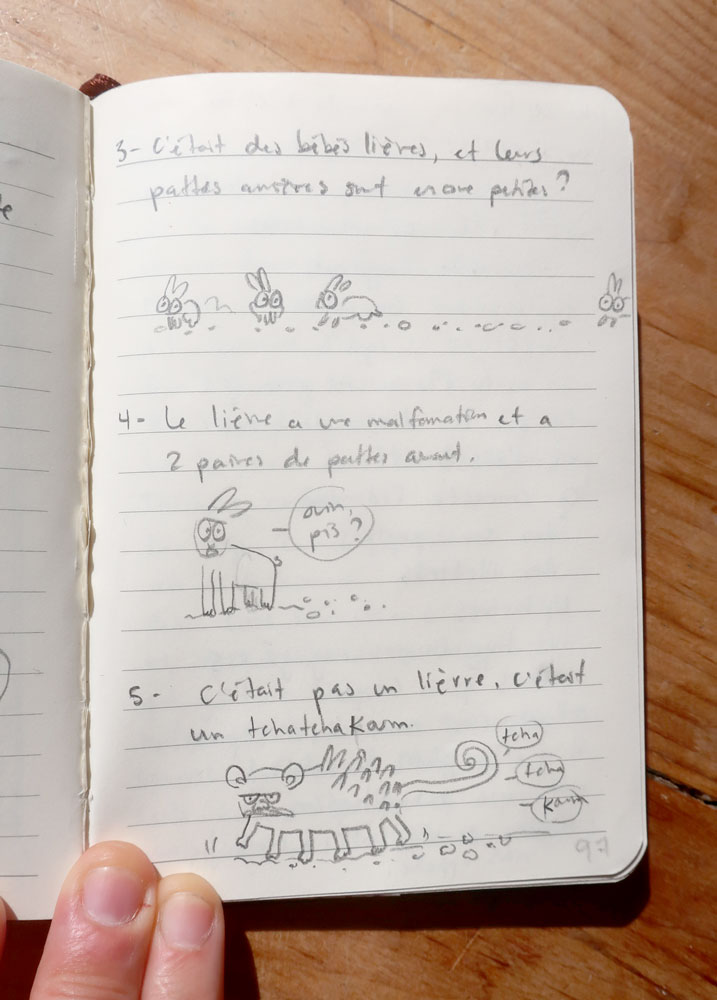 3- C'était des bébés lièvres, et leurs
pattes arrières sont encore petites?
4- Le lièvre a une malformation et a
2 paires de pattes avant.
ouin,
pis?
5- C'était pas un lièvre, c'était
un tchatchakam.
tcha
tcha
Kam
97